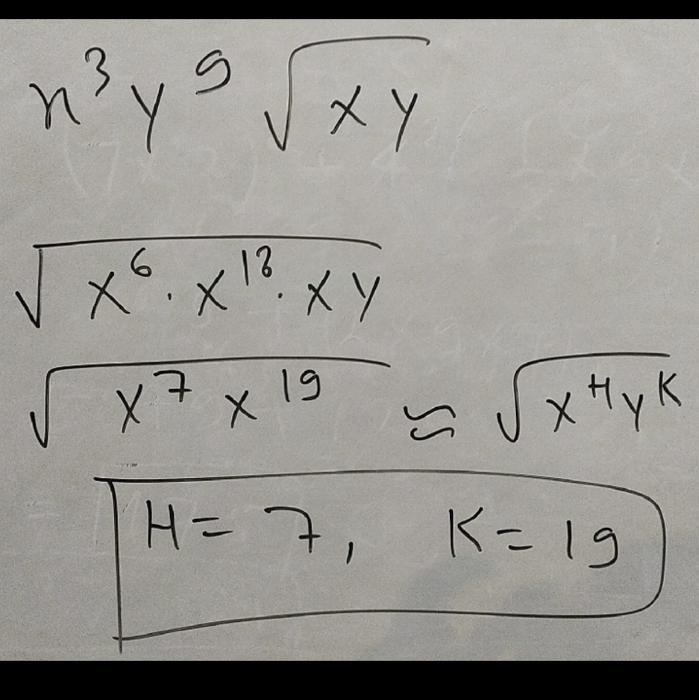 x³y⁹√xy
√x⁶·x¹⁸·xy
√x⁷x¹⁹ ≈ √x^H y^K
H=7, K=19